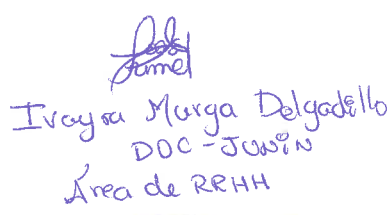 Ivaysa Murga Delgadillo
DOC - JUNIN
Área de RRHH